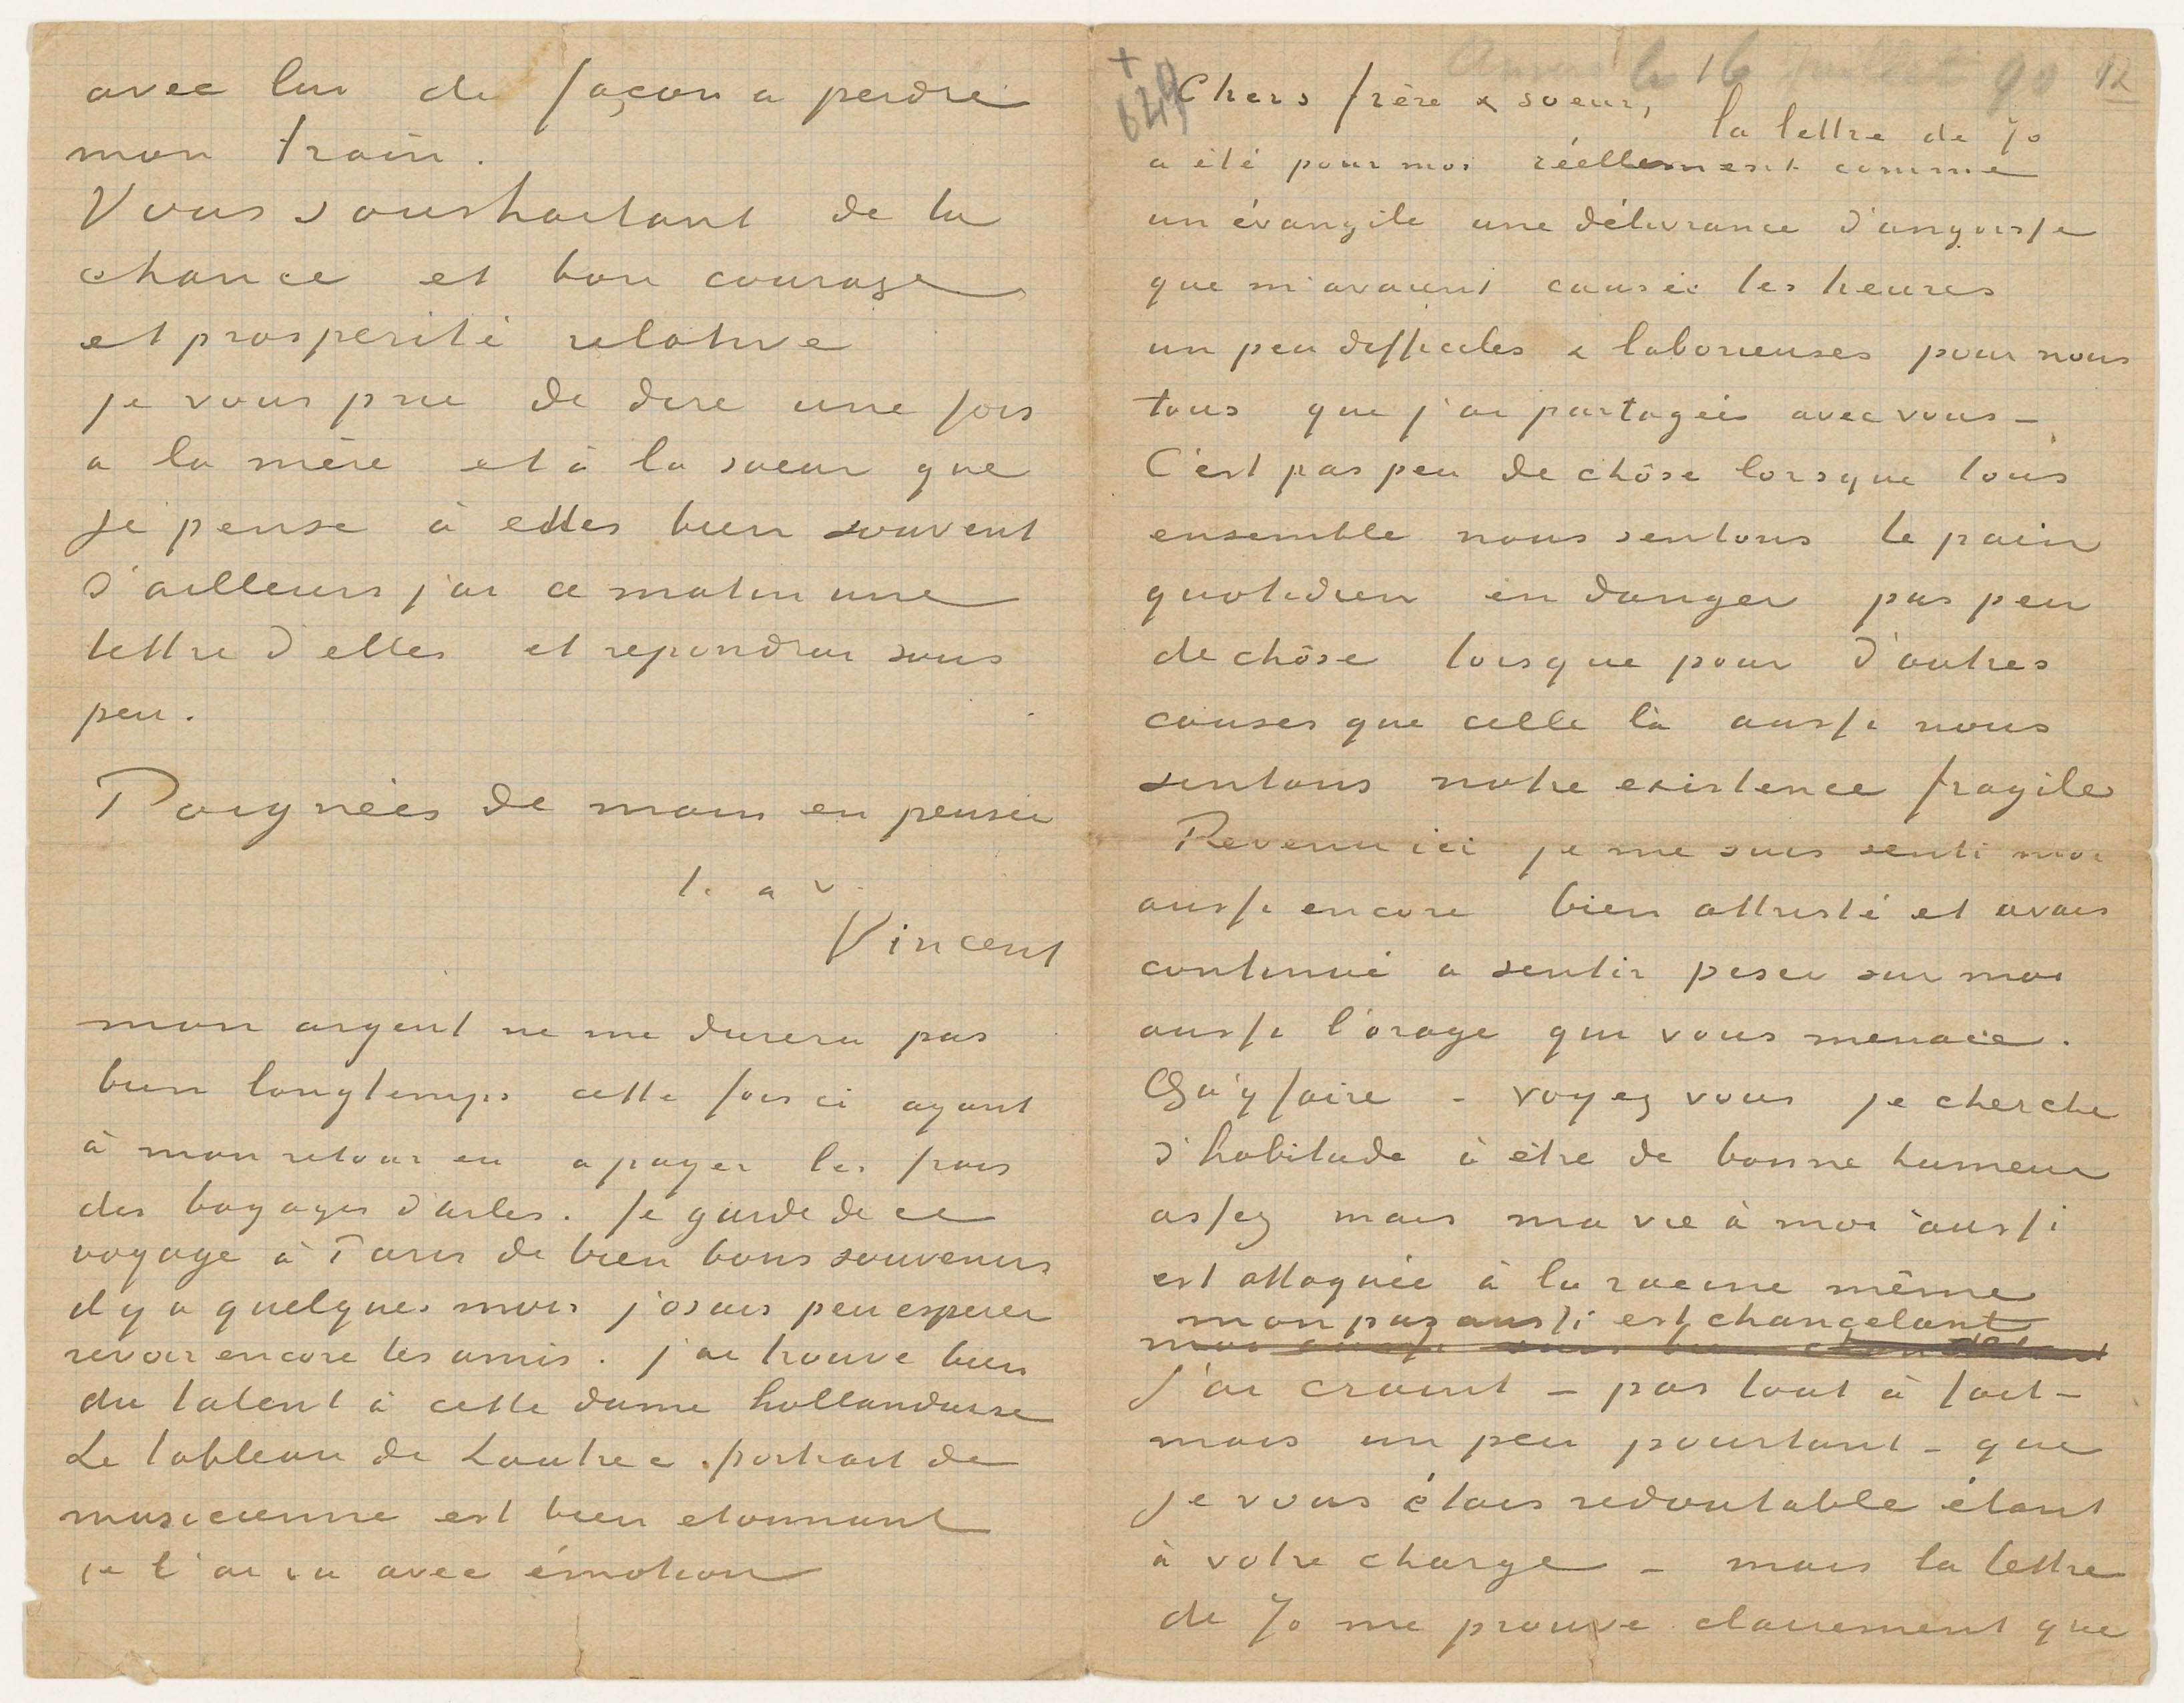 avec lui de façon a perdre
mon train.
Vous souhaitant de la
chance et bon courage
et prosperité relative
je vous prie de dire une fois
a la mère et à la soeur que
je pense à elles bien souvent
d'ailleurs j'ai ce matin une
lettre d'elles et repondrai sous
peu.
Poignées de main en pensée
t. a v.
Vincent
mon argent ne me durera pas
bien longtemps cette fois ci ayant
à mon retour eu a payer les frais
des bagages d'arles. Je garde de ce
voyage à Paris de bien bons souvenirs
il y a quelques mois j'osais peu esperer
revoir encore les amis. j'ai trouvé bien
du talent à cette dame hollandaise
Le tableau de Lautrec. portrait de
musicienne est bien etonnant
je l'ai vu avec émotion
+
649
Auvers le 16 Juillet 90 12
Chers frère & soeur,
la lettre de Jo
a été pour moi réellement comme
un évangile une délivrance d'angoisse
que m'avaient causée les heures
un peu difficiles & laborieuses pour nous
tous que j'ai partagées avec vous –
C'est pas peu de chôse lorsque tous
ensemble nous sentons le pain
quotidien en danger pas peu
de chôse lorsque pour d'autres
causes que celle là aussi nous
sentons notre existence fragile
Revenu ici je me suis senti moi
aussi encore bien attristé et avais
continué a sentir peser sur moi
aussi l'orage qui vous menace.
Qu'y faire – voyez vous je cherche
d'habitude à être de bonne humeur
assez mais ma vie à moi aussi
est attaquée à la racine même
mon pas aussi est chancelant
moi aussi suis bien chancelant
J'ai craint – pas tout à fait –
mais un peu pourtant – que
je vous étais redoutable étant
à votre charge – mais la lettre
de Jo me prouve clairement que